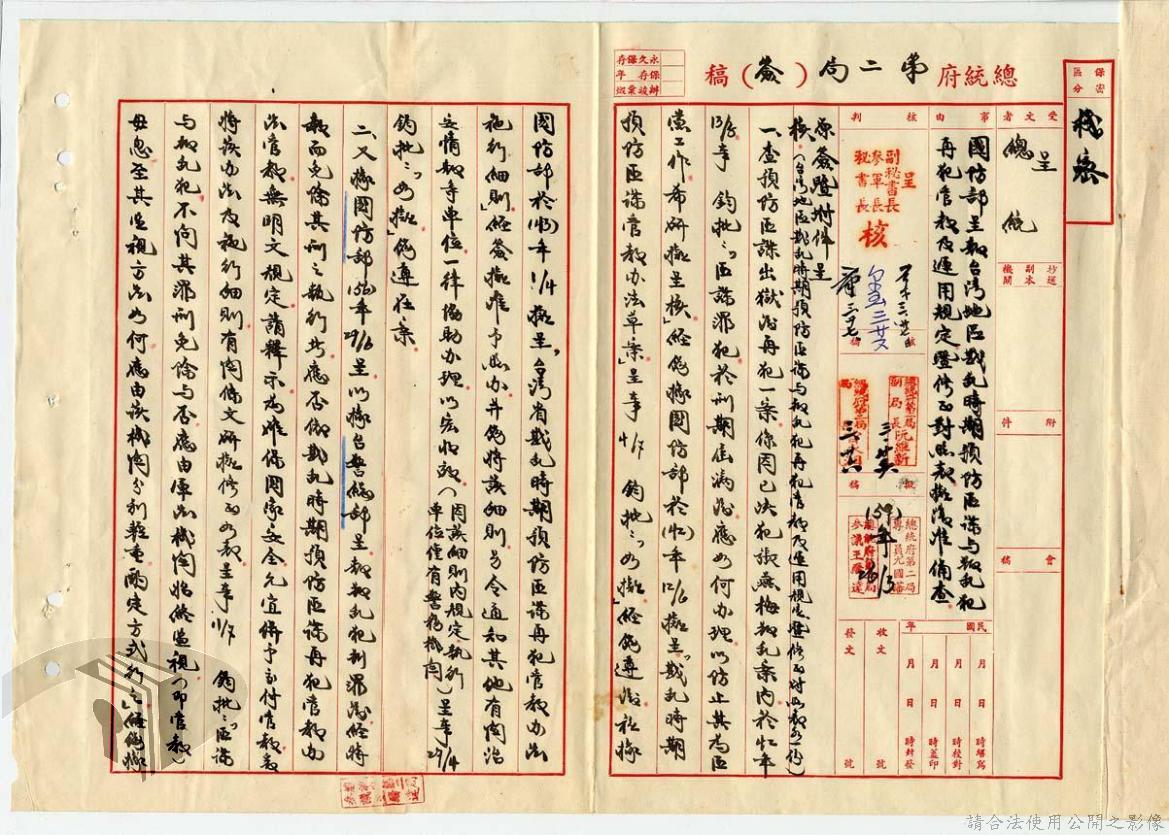 保密
區分
機密
總統府第二局（簽）稿
永久保存
保存 年
辦竣案燬
受文者
呈
總統
抄送
副本
機關
附
件
會
稿
事由
國防部呈報台灣地區戡亂時期預防匪諜與叛亂犯
再犯管教及運用規定暨修正對照表擬復准備查
核判
呈
副秘書長
參軍長
秘書長
核
總統府第二局
副局長阮維新
總統府第二局
專員尤國藩
(59)年
26/3
擬稿
核稿
民國 年
月 日 時繕寫
月 日 時校對
月 日 時蓋印
月 日 時封發
收文 號
發文 號
原簽暨附件呈
核（台灣地區戡亂時期預防匪諜與叛亂犯再犯管教及運用規定暨修正對照表各一份）
一、查預防匪諜出獄後再犯一案係因已決犯張燕梅叛亂案內於42年
13/5奉 鈞批：「匪諜罪犯於刑期屆滿後應如何辦理以防止其為匪
黨工作希研擬呈核」經飭據國防部於(42)年12/6擬呈「戡亂時期
預防匪諜管教办法草案」呈奉 4/7 鈞批：「如擬」經飭遵後旋據
國防部於(43)年1/4擬呈「台灣省戡亂時期預防匪諜再犯管教办法
施行細則」經簽擬准予照办并飭將該細則另令通知其他有關治
安情報等單位一律協助办理以宏收效（因該細則內規定執行
單位僅有警務機関）呈奉27/4
鈞批：「如擬」飭遵在案
二、又據國防部(50)年29/6呈以據台警總部呈報叛亂犯判罪後經特
赦而免除其刑之執行者應否依戡亂時期預防匪諜再犯管教办
法管教無明文規定請釋示為維係國家安全允宜併予交付管教爰
將該办法及施行細則有関條文研擬修正如報呈奉11/7 鈞批：「匪諜
與叛乱犯不問其罪刑免除與否應由軍法機関始終監視（即管教）
毋怠至其監視方法如何應由該機関分別輕重酌定方式行之」經飭據
請合法使用公開之影像